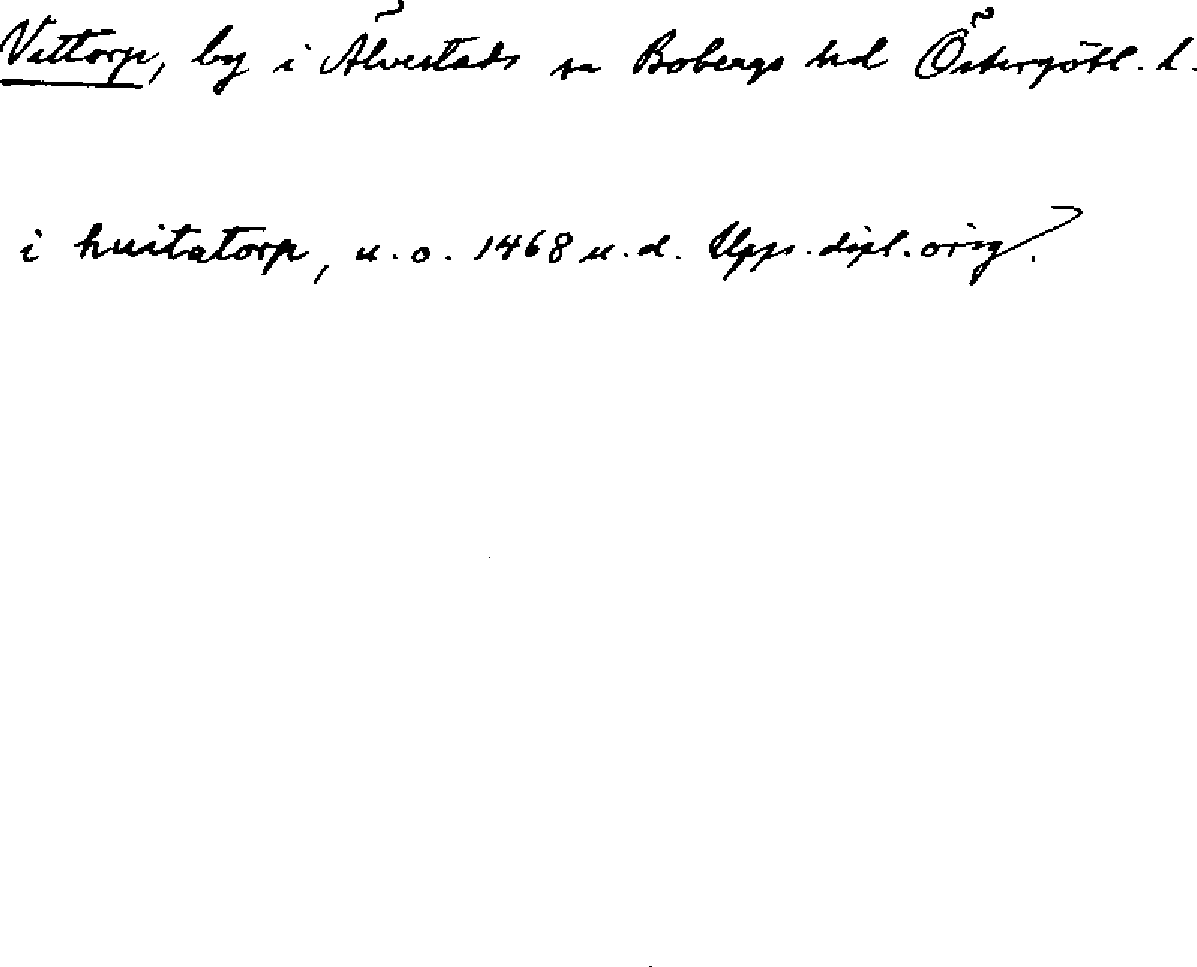 Vittorp, by i Älvestads sn Bobergs hd Östergötl. l.
i huitatorp, u.o. 1468 u.d. Upps. dipl. orig.